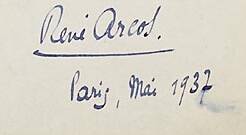 René Arcos.
Paris, Mai 1937